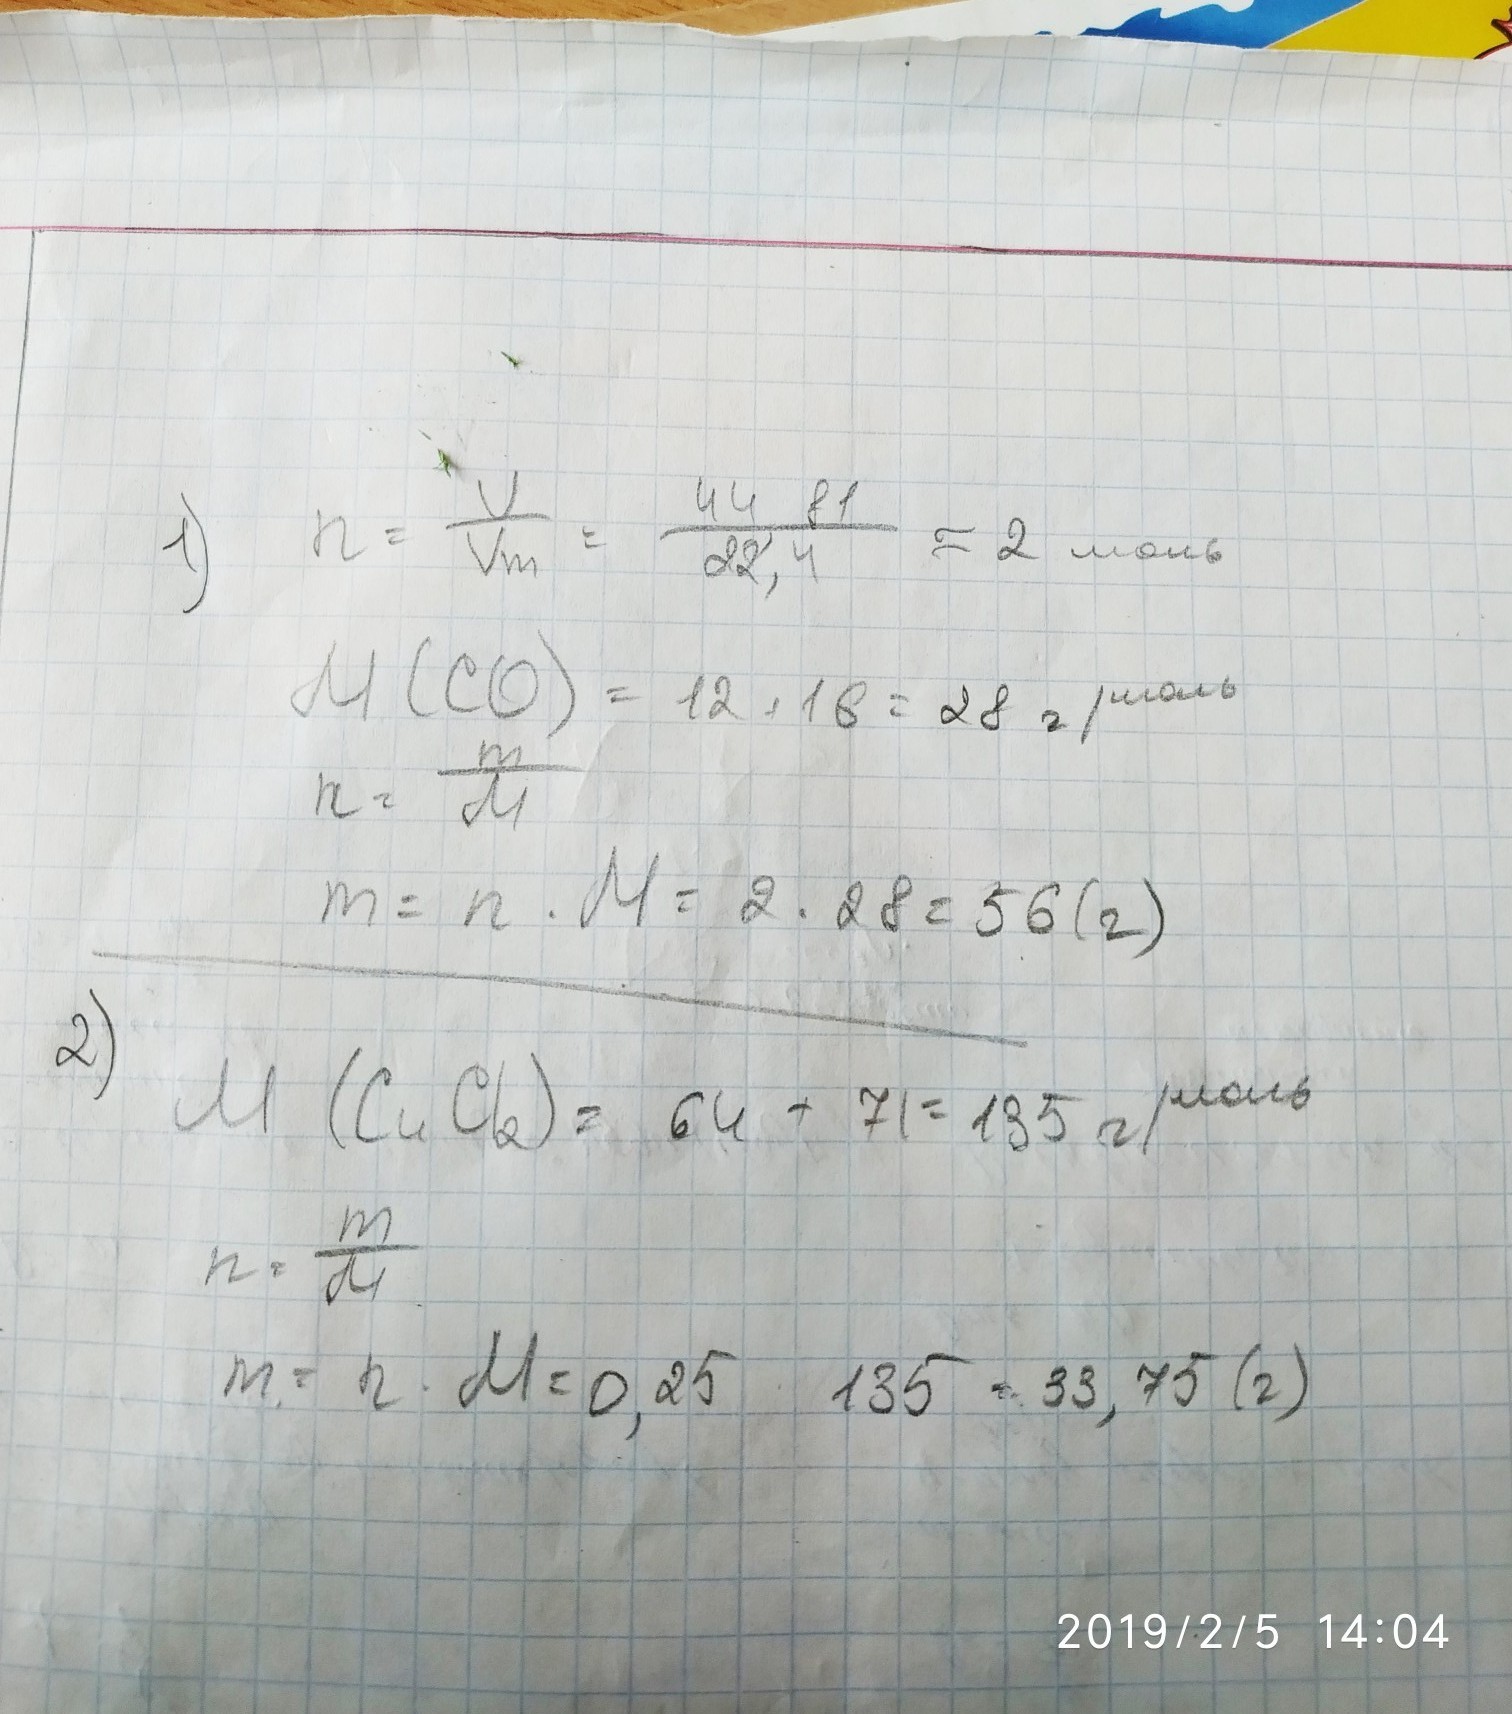 1) n = V/Vm = 44 81/22,4 ≈ 2 моль
M (CO) = 12 + 16 = 28 г/моль
n = m/M
m = n · M = 2 · 28 = 56 (г)
2) M (CuCl2) = 64 + 71 = 135 г/моль
n = m/M
m = n · M = 0,25 135 = 33,75 (г)
2019/2/5 14:04